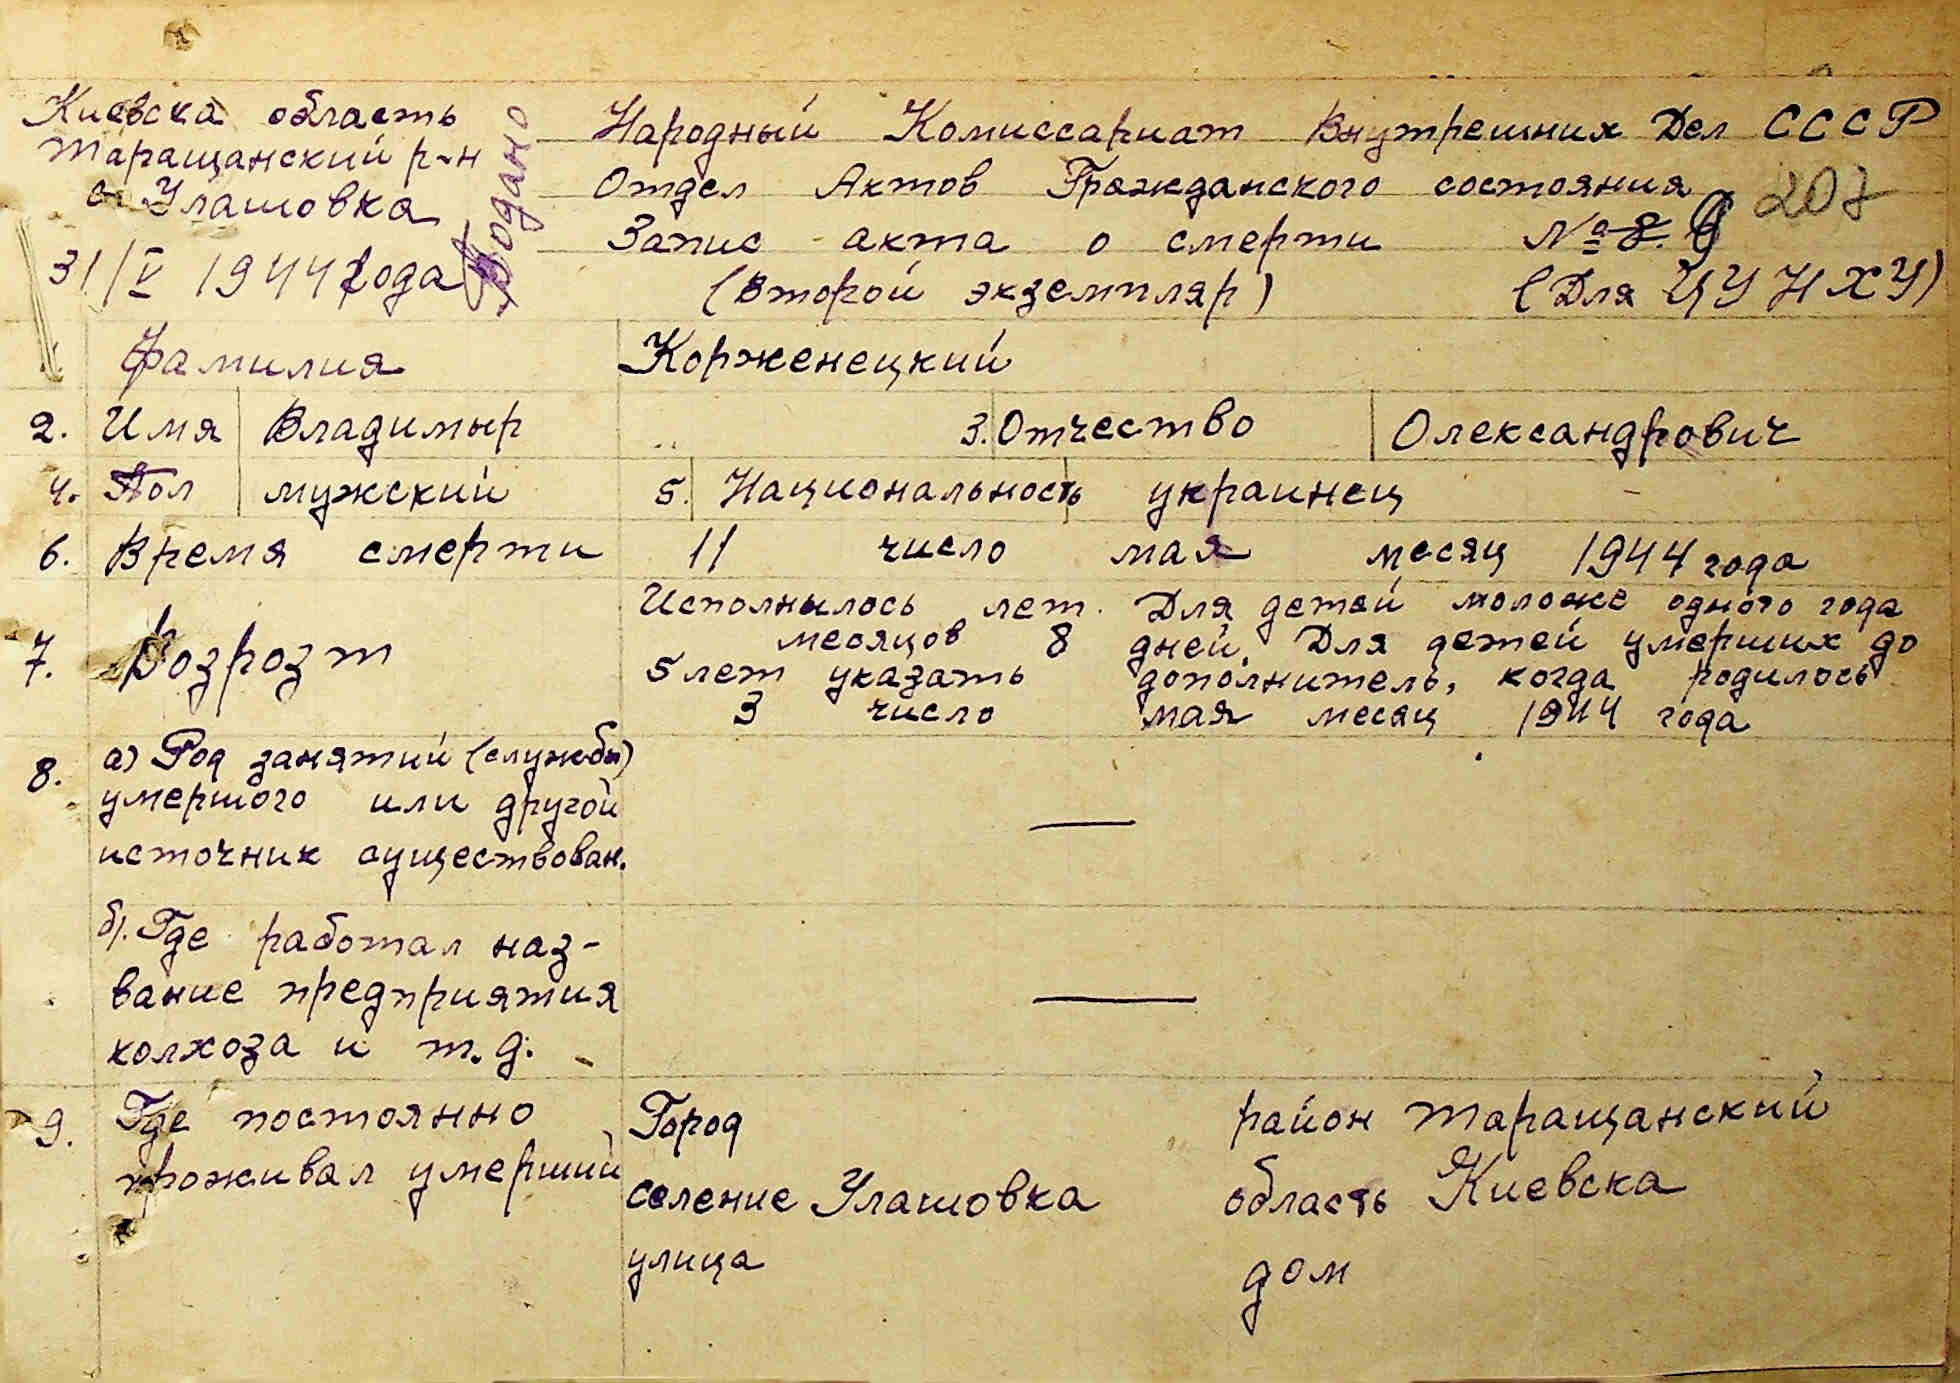 Киевска область
Таращанский р-н
с. Улашовка
31/V 1944 года
Подано
Народный Комиссариат Внутрешних Дел СССР
Отдел Актов Гражданского состояния
207
Запис акта о смерти № 8.
(Второй экземпляр) (Для ЦУНХУ)
Фамилия Корженецкий
2. Имя Владимыр 3. Отчество Олександрович
4. Пол мужский 5. Национальность украинец
6. Время смерти 11 число мая месяц 1944 года
7. Возрозт
Исполнылось лет. Для детей моложе одного года
месяцов 8 дней. Для детей умерших до
5 лет указать дополнитель, когда родилось
3 число мая месяц 1944 года
8. а) Род занятий (службы)
умершого или другой
источник существован. —
б). Где работал наз-
вание предприятия
колхоза и т.д. —
9. Где постоянно
проживал умерший
Город район Таращанский
селение Улашовка область Киевска
улица дом